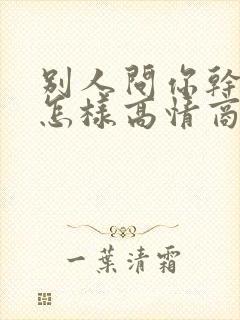 別人問你幹
怎樣高情商
一葉清霜